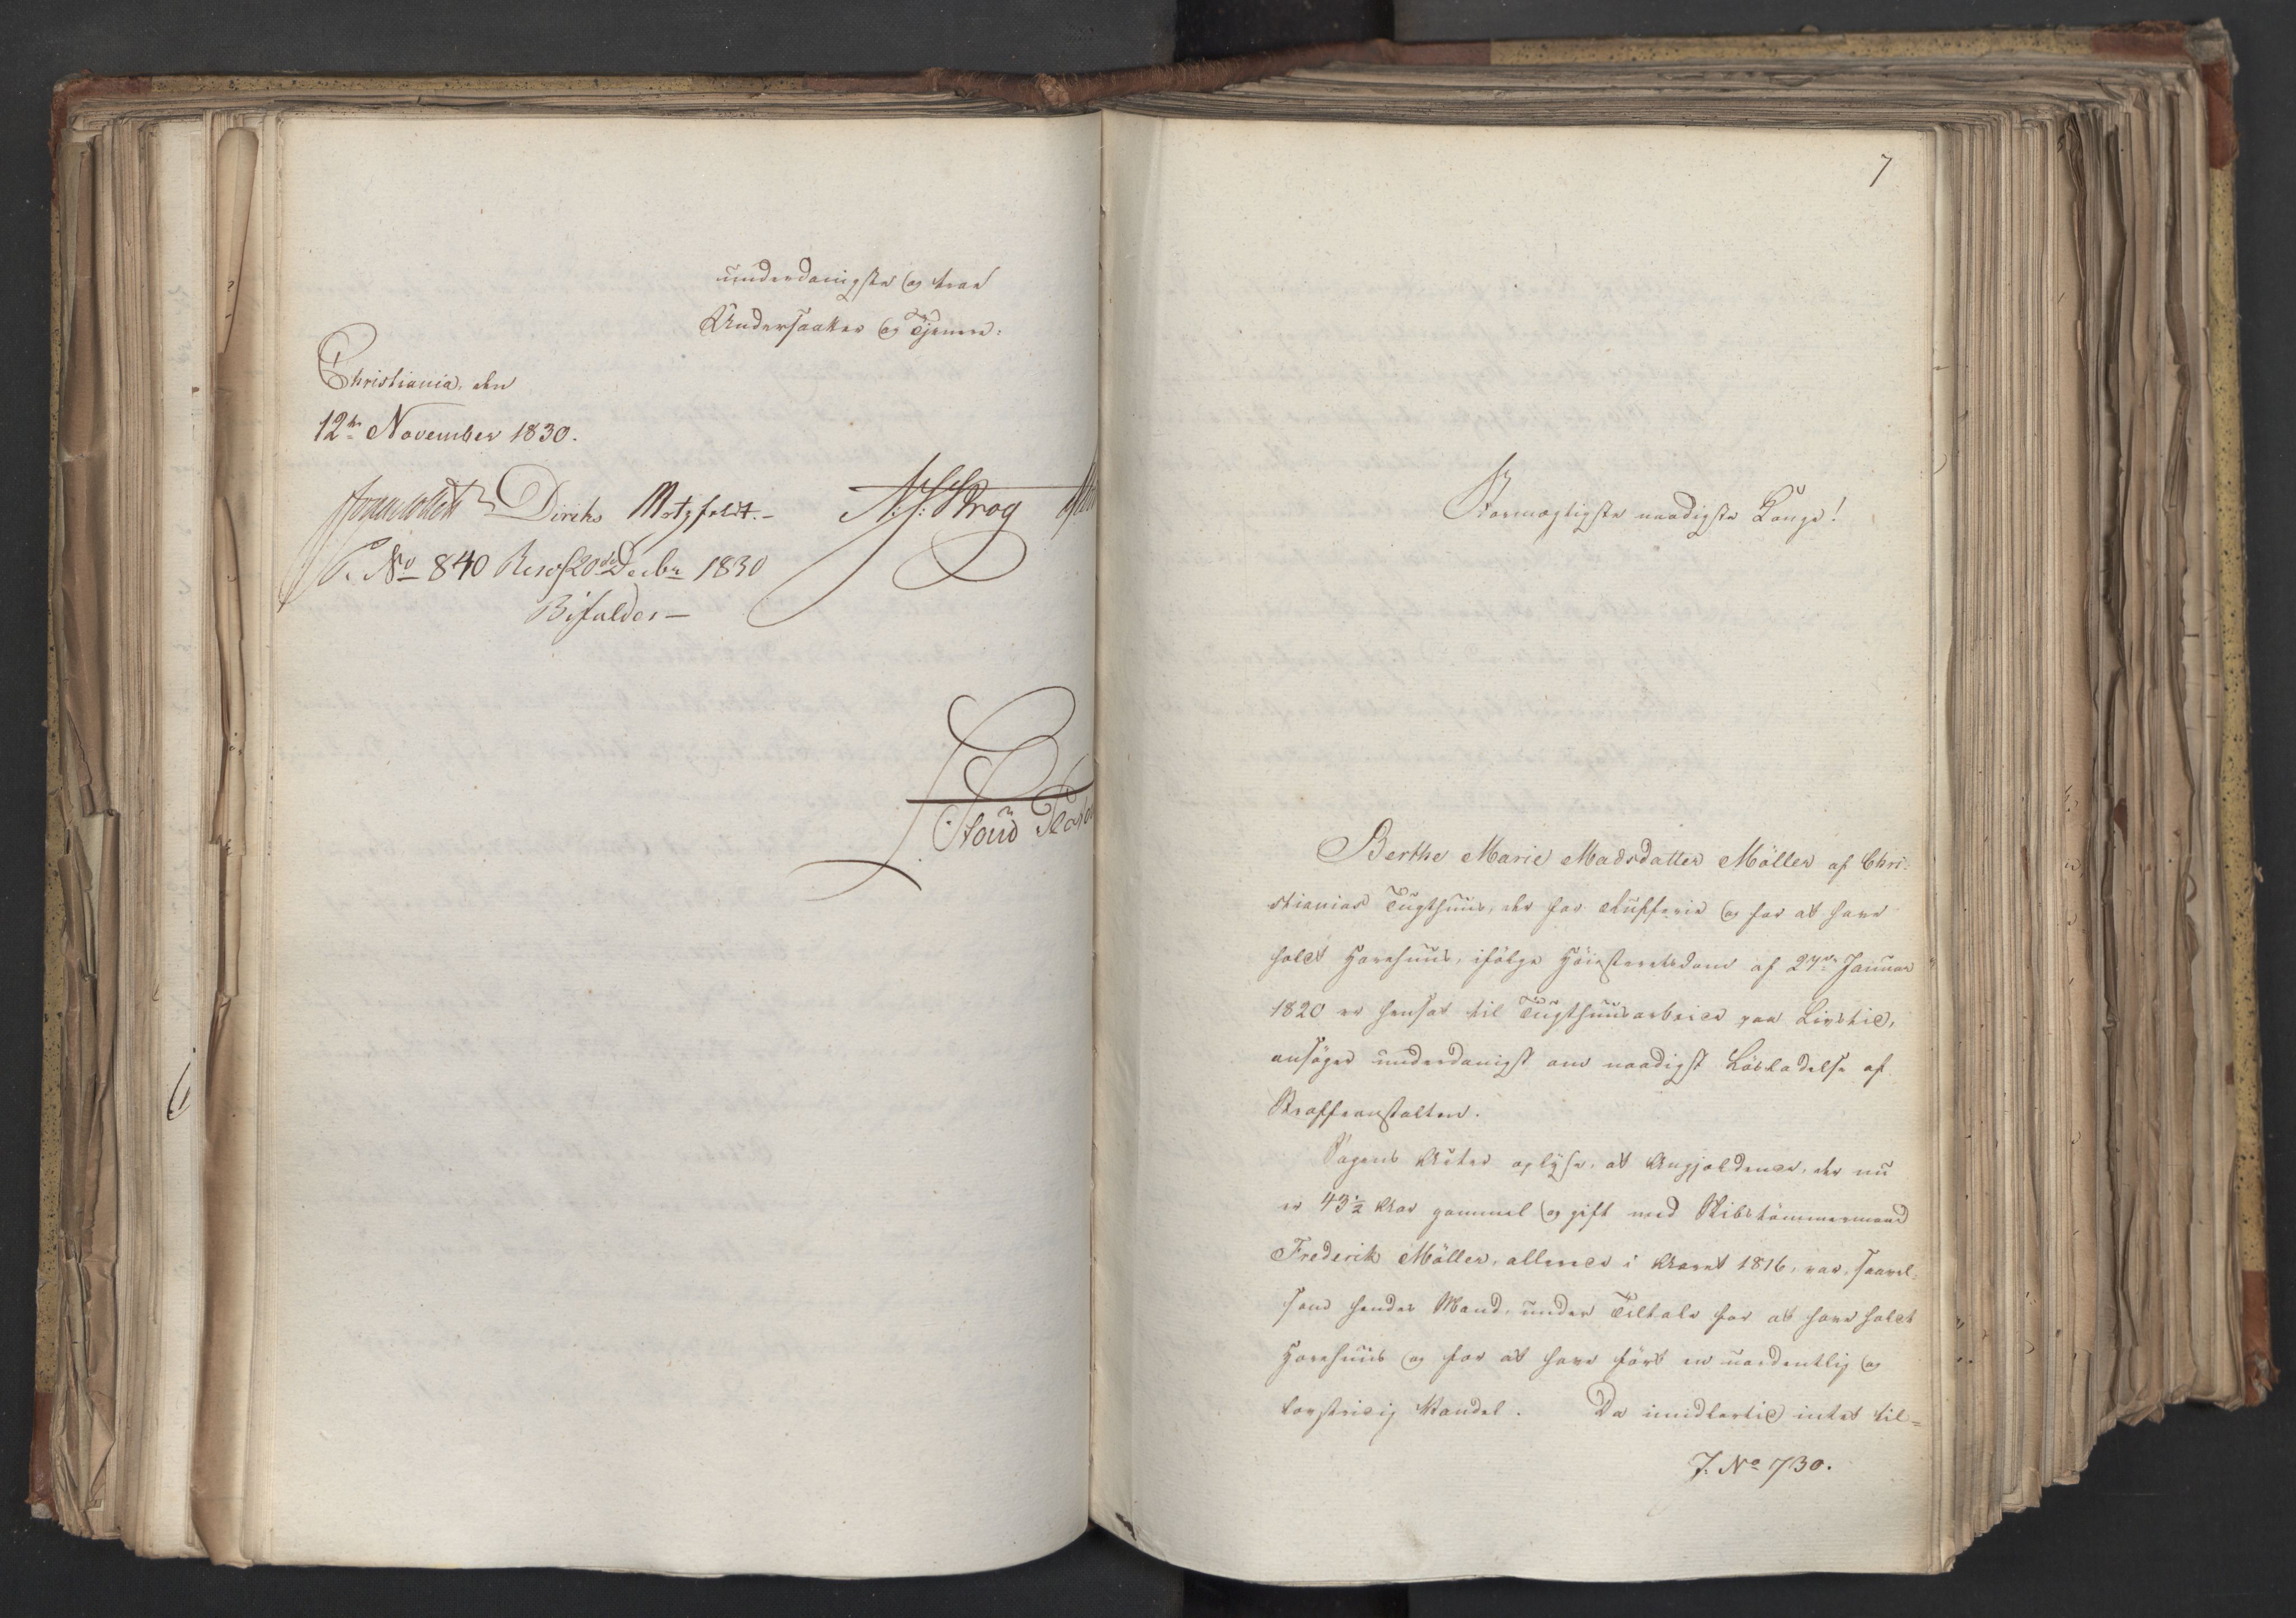 underdanigste og troe
Undersaatter og Tjenere:
Christiania, den
12te November 1830.
Jonas Collett Diriks Motzfeldt.- N. J. Krog
S. No 840 Resol 20de Decbr 1830
Bifaldes—
7
Stormægtigste naadigste Konge!
Berthe Marie Madsdatter Möller af Chri-
stianias Tugthuus, der for Rufferie og for at have
holdt Horehuus, ifölge Höiesteretsdom af 27de Januar
1820 er hensat til Tugthuusarbeide paa Livstid,
ansöger underdanigst om naadigst Lösladelse af
Straffeanstalten.
Sagens Acter oplyse, at Angjeldende, der nu
er 43½ Aar gammel og gift med Skibstömmermand
Frederik Möller, allerede i Aaret 1816, var, saavel-
som hendes Mand, under Tiltale for at have holdt
Horehuus og for at have fört en uordentlig og
forstridig Vandel. Da imidlertid intet til=
J. No 730.